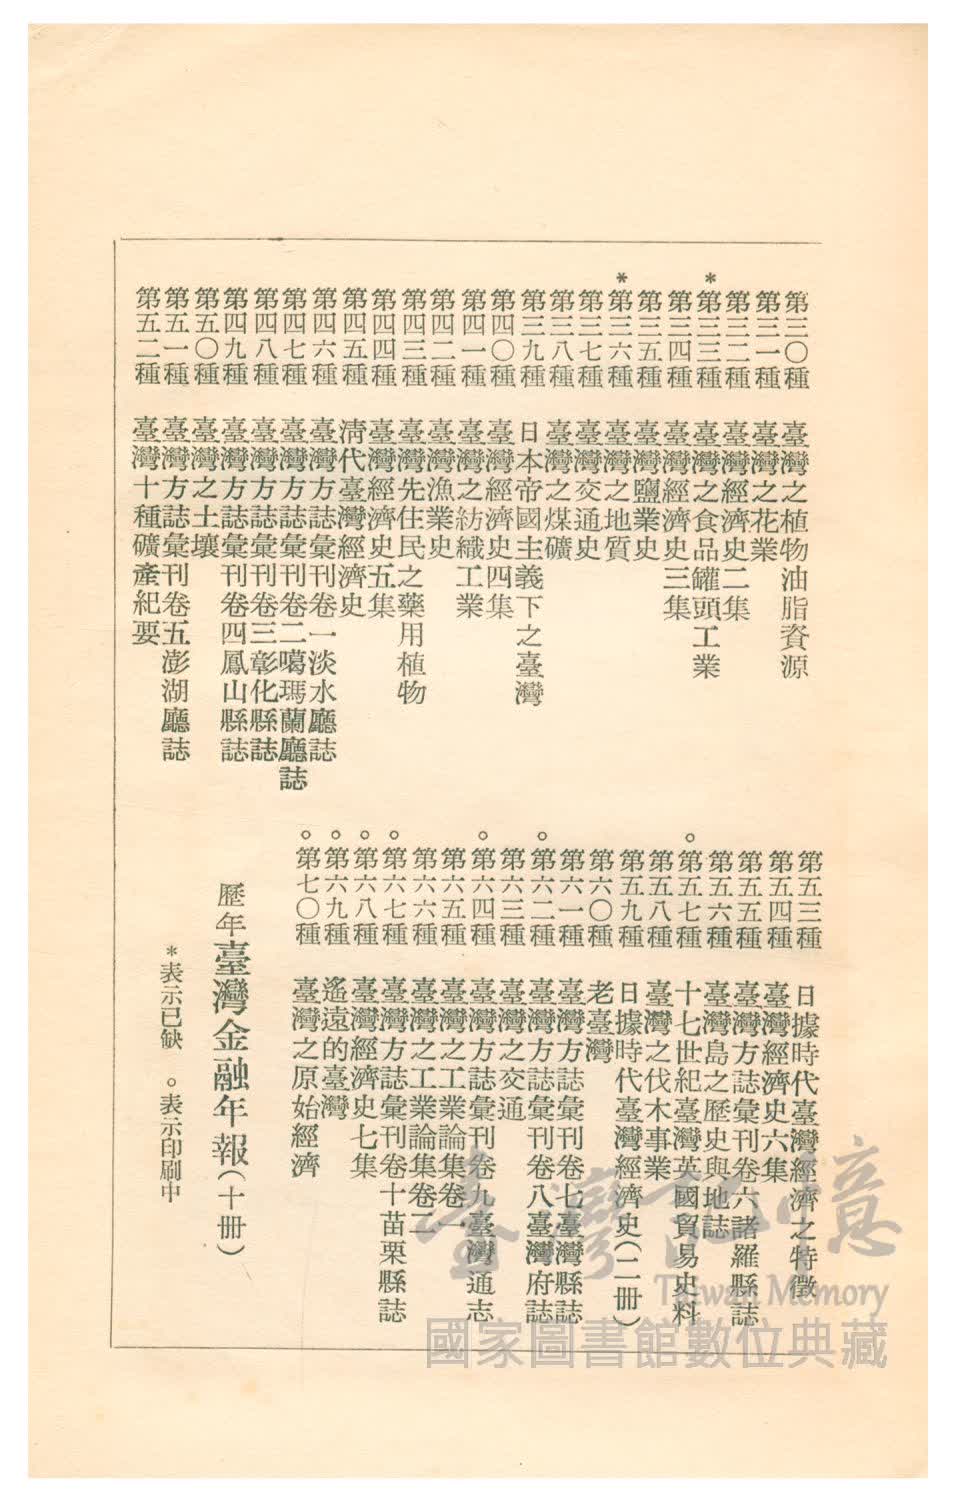 第三〇種 臺灣之植物油脂資源
第三一種 臺灣之花業
第三二種 臺灣經濟史二集
*第三三種 臺灣之食品罐頭工業
第三四種 臺灣經濟史三集
第三五種 臺灣鹽業史
*第三六種 臺灣之地質
第三七種 臺灣交通史
第三八種 臺灣之煤礦
第三九種 日本帝國主義下之臺灣
第四〇種 臺灣經濟史四集
第四一種 臺灣之紡織工業
第四二種 臺灣漁業史
第四三種 臺灣先住民之藥用植物
第四四種 臺灣經濟史五集
第四五種 清代臺灣經濟史
第四六種 臺灣方誌彙刊卷一淡水廳誌
第四七種 臺灣方誌彙刊卷二噶瑪蘭廳誌
第四八種 臺灣方誌彙刊卷三彰化縣誌
第四九種 臺灣方誌彙刊卷四鳳山縣誌
第五〇種 臺灣之土壤
第五一種 臺灣方誌彙刊卷五澎湖廳誌
第五二種 臺灣十種礦產紀要
第五三種 日據時代臺灣經濟之特徵
第五四種 臺灣經濟史六集
第五五種 臺灣方誌彙刊卷六諸羅縣誌
第五六種 臺灣島之歷史與地誌
。第五七種 十七世紀臺灣英國貿易史料
第五八種 臺灣之伐木事業
第五九種 日據時代臺灣經濟史(二冊)
第六〇種 老臺灣
第六一種 臺灣方誌彙刊卷七臺灣縣誌
。第六二種 臺灣方誌彙刊卷八臺灣府誌
第六三種 臺灣之交通
。第六四種 臺灣方誌彙刊卷九臺灣通志
第六五種 臺灣之工業論集卷一
第六六種 臺灣之工業論集卷二
。第六七種 臺灣方誌彙刊卷十苗栗縣誌
。第六八種 臺灣經濟史七集
。第六九種 遙遠的臺灣
。第七〇種 臺灣之原始經濟
歷年臺灣金融年報(十冊)
*表示已缺 。表示印刷中
臺灣記憶
Taiwan Memory
國家圖書館數位典藏